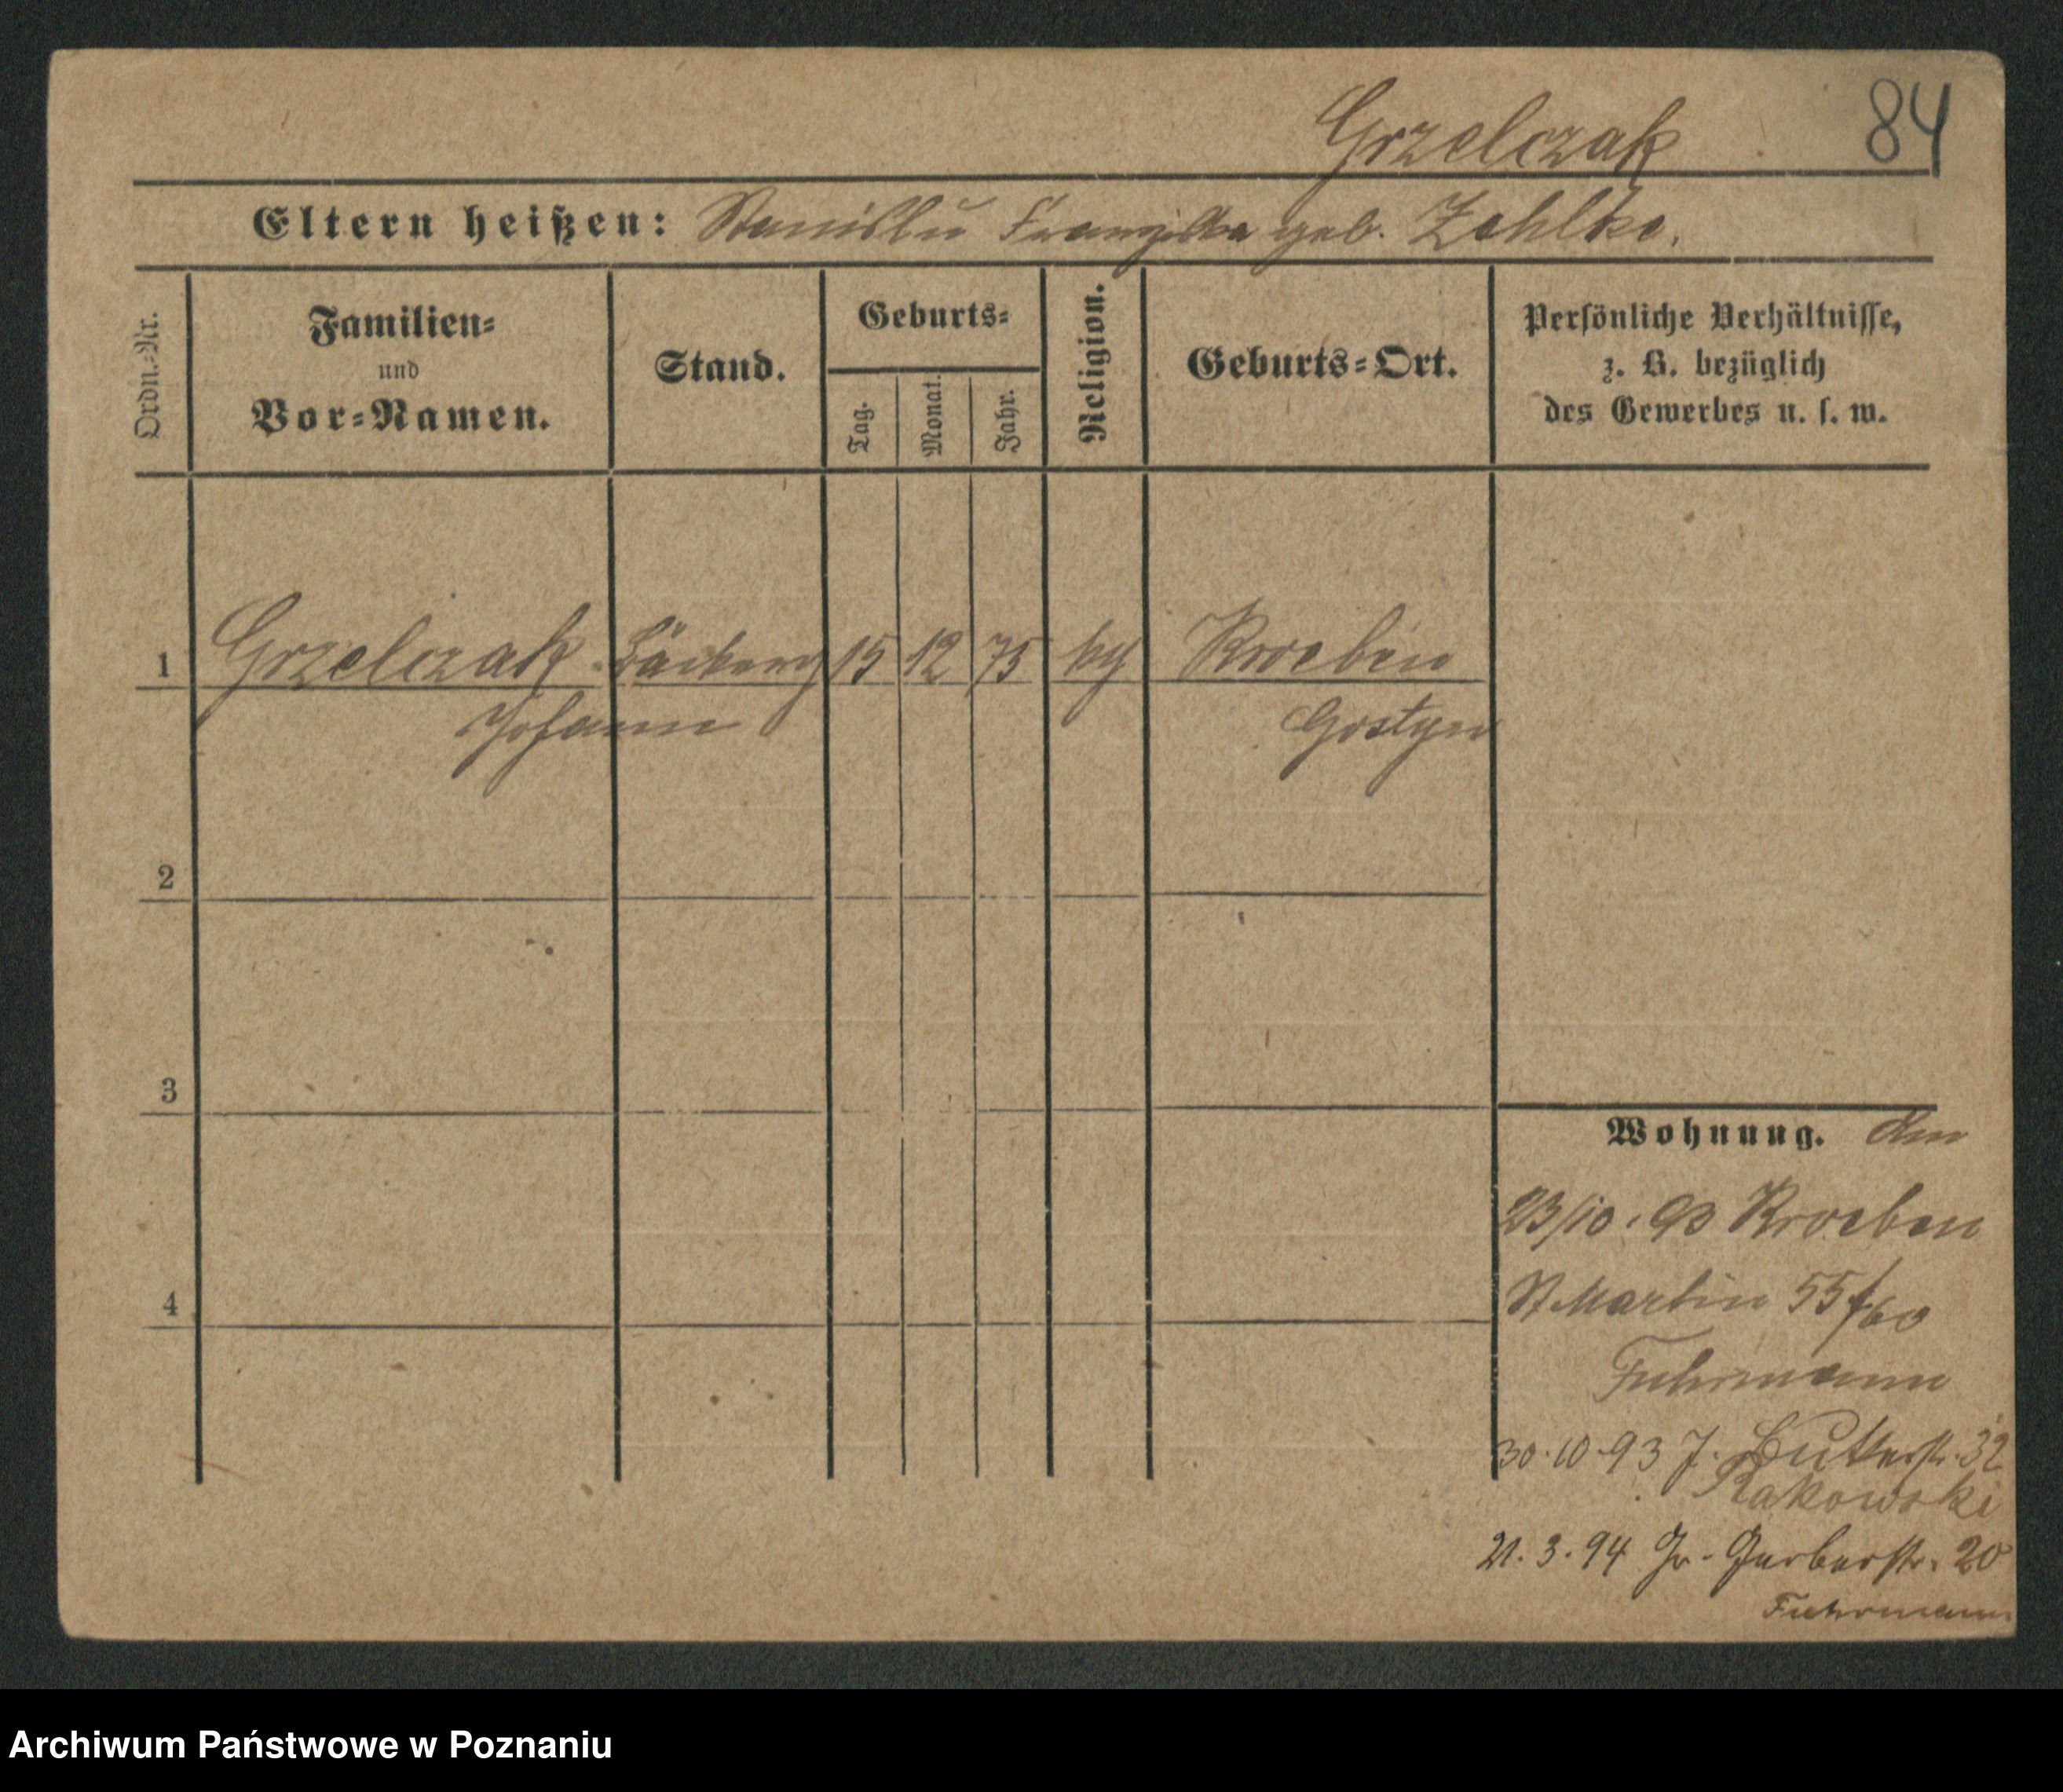 Grzelczak 84
Eltern heißen: Stanislu Franziska geb. Zehlke.
Ordn.-Nr.
Familien-
und
Vor-Namen.
Stand.
Geburts-
Tag.
Monat.
Jahr.
Religion.
Geburts-Ort.
Persönliche Verhältnisse,
z. B. bezüglich
des Gewerbes u. s. w.
1 Grzelczak Bäckerg 15 12 75 kg Kroeben
Johann Gostyn
2
3
4
Wohnung. den
23/10. 93 Kroeben
St Martin 55/60
Fuhrmann
30.10.93 J. Butterstr. 32
Rakowski
21.3.94 Gr. Gerberstr. 20
Fuhrmann
Archiwum Państwowe w Poznaniu